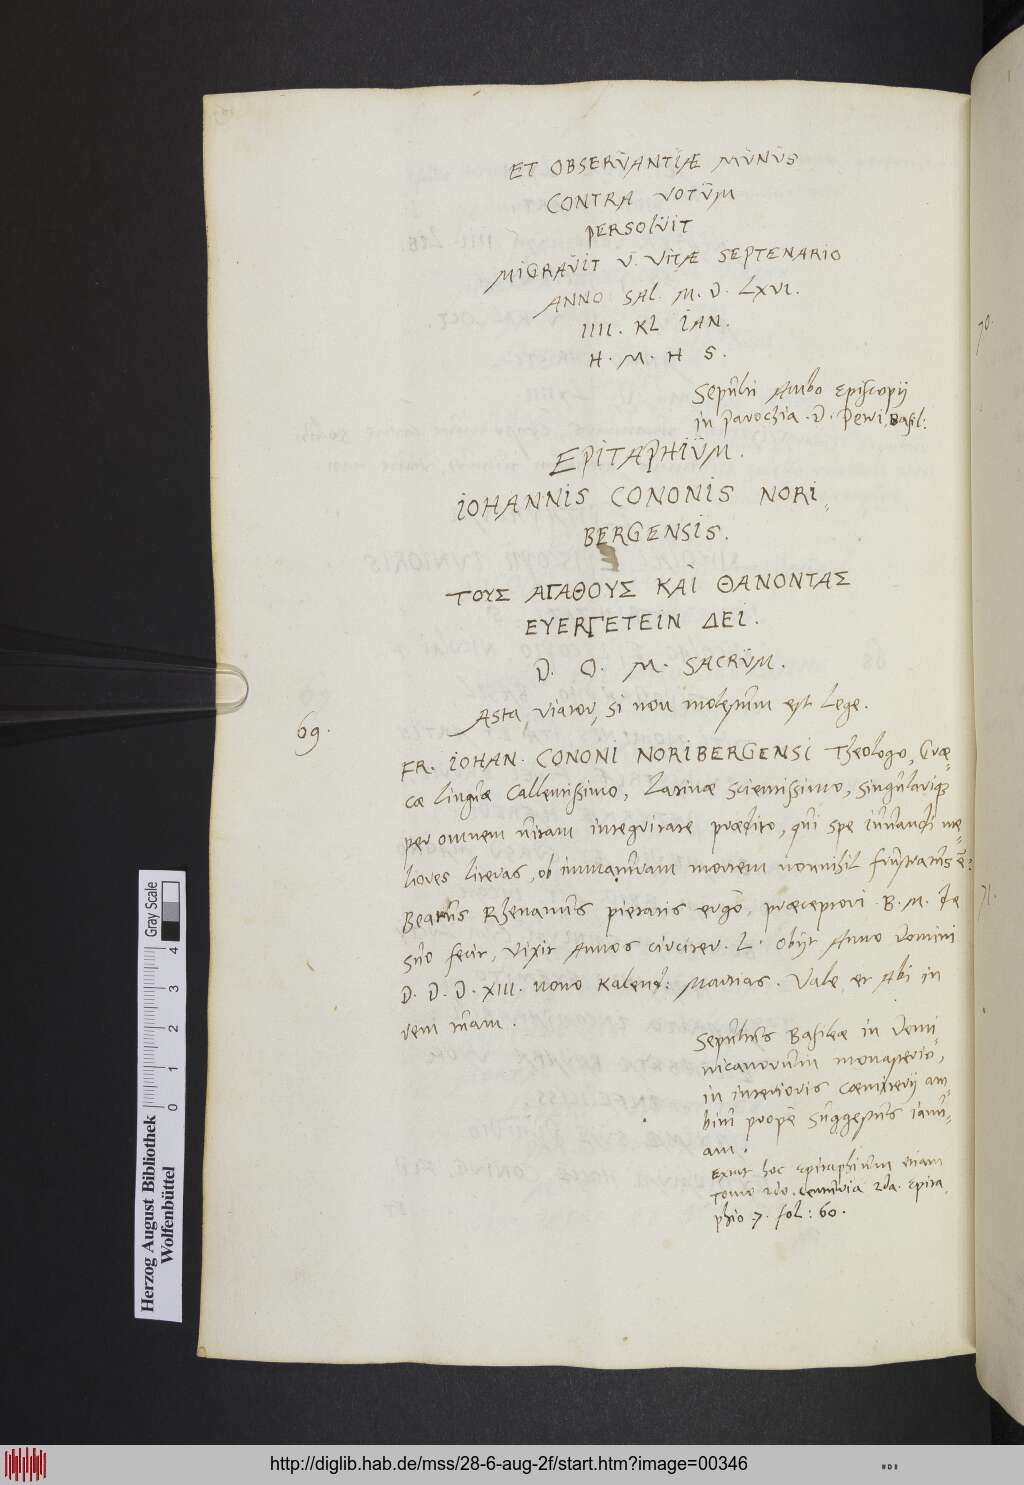 ET OBSERVANTIÆ MUNUS
CONTRA VOTUM
PERSOLVIT
MIGRAVIT V. VITÆ SEPTENARIO
ANNO SAL. M. D. LXVI.
IIII. KL IAN.
H. M. H S.
Sepulti Ambo Episcopij
in parochia . D. Petri, Basil:
EPITAPHIUM.
IOHANNIS CONONIS NORI„
BERGENSIS.
ΤΟΥΣ ΑΓΑΘΟΥΣ ΚΑΙ ΘΑΝΟΝΤΑΣ
ΕΥΕΡΓΕΤΕΙΝ ΔΕΙ.
D. O. M. SACRUM.
Asta, viator, si non molestum est Lege.
69.
FR. IOHAN. CONONI NORIBERGENSI Theologo, Græ„
cæ linguæ Callentissimo, Latinæ Scientissimo, singulariq3
per omnem vitam integritate prædito, qui spe iuvandi me„
liores literas, ob immaturam mortem nonnihil frustratus ē:
Beatus Rhenanus pietatis ergo, præceptori B. M. de
suo fecit, vixit Annos circiter . L. Obijt Anno domini
D. D. D. XIII. nono Kalend: Martias. Vale et Abi in
rem tuam.
Sepultus Basileæ in Domi„
nicanorum monasterio,
in interioris cæmiterij am„
bitu prope suggestus ianu„
am.
Extat hoc epitaphium etiam
Tomo 2do. centuria 2da. Epita„
phio 7. fol: 60.
70.
71.
Gray Scale
0 1 2 3 4
Herzog August Bibliothek
Wolfenbüttel
http://diglib.hab.de/mss/28-6-aug-2f/start.htm?image=00346